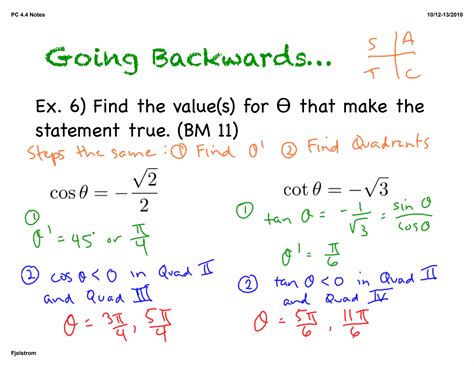 PC 4.4 Notes 10/12-13/2010
Going Backwards...
S | A
T | C
Ex. 6) Find the value(s) for Θ that make the
statement true. (BM 11)
Steps the same: ① Find θ' ② Find Quadrants
cos θ = −√2/2
① θ' = 45° or π/4
② cos θ < 0 in Quad II
and Quad III
θ = 3π/4, 5π/4
cot θ = −√3
① tan θ = −1/√3 = sin θ/cos θ
θ' = π/6
② tan θ < 0 in Quad II
and Quad IV
θ = 5π/6, 11π/6
Fjelstrom